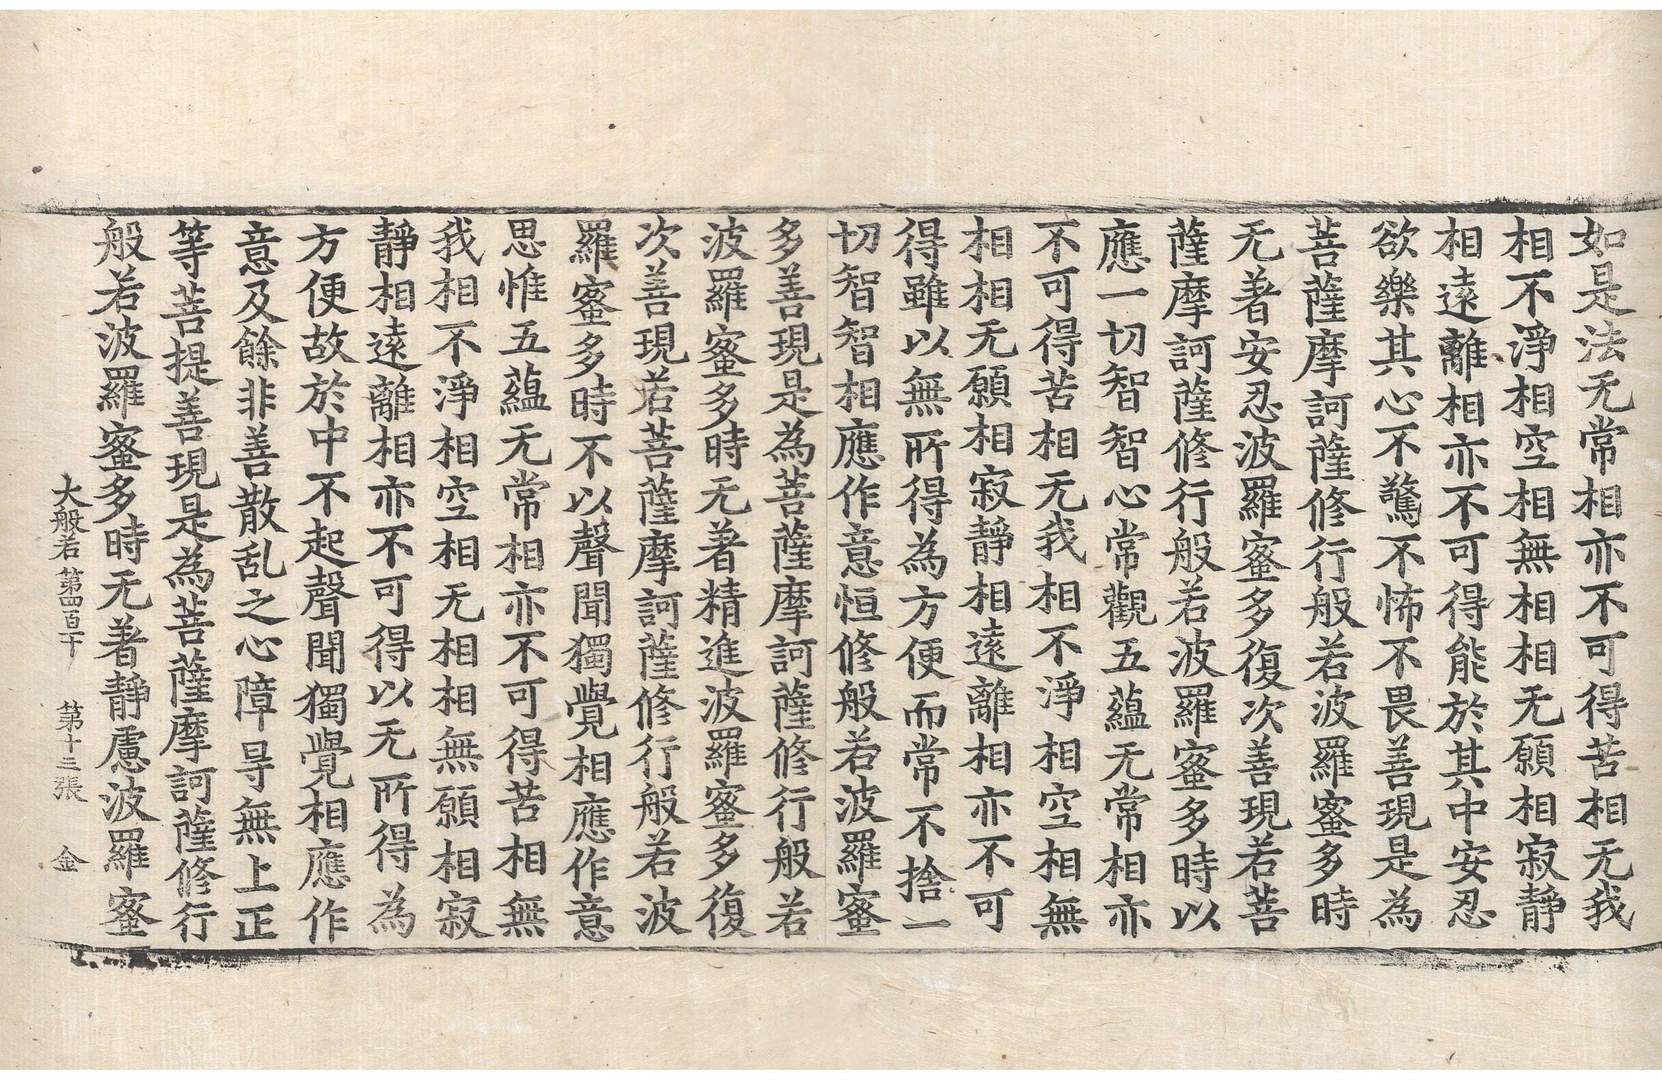 如是法无常相亦不可得苦相无我
相不淨相空相無相相无願相寂靜
相遠離相亦不可得能於其中安忍
欲樂其心不驚不怖不畏善現是為
菩薩摩訶薩修行般若波羅蜜多時
无著安忍波羅蜜多復次善現若菩
薩摩訶薩修行般若波羅蜜多時以
應一切智智心常觀五蘊无常相亦
不可得苦相无我相不淨相空相無
相相无願相寂靜相遠離相亦不可
得雖以無所得為方便而常不捨一
切智智相應作意恒修般若波羅蜜
多善現是為菩薩摩訶薩修行般若
波羅蜜多時无著精進波羅蜜多復
次善現若菩薩摩訶薩修行般若波
羅蜜多時不以聲聞獨覺相應作意
思惟五蘊无常相亦不可得苦相無
我相不淨相空相无相相無願相寂
靜相遠離相亦不可得以无所得為
方便故於中不起聲聞獨覺相應作
意及餘非善散乱之心障㝵無上正
等菩提善現是為菩薩摩訶薩修行
般若波羅蜜多時无著靜慮波羅蜜
大般若第四百十 第十三張 金